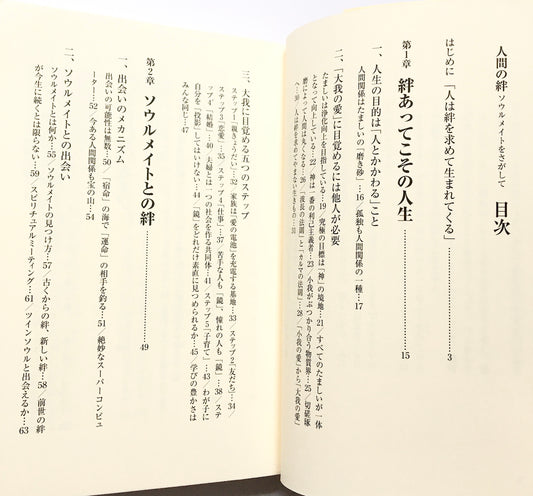 人間の絆 ソウルメイトをさがして
目次
はじめに 「人は絆を求めて生まれてくる」……3
第1章 絆あってこその人生……15
一、人生の目的は「人とかかわる」こと
人間関係はたましいの「磨き砂」…16/孤独も人間関係の一種…17
二、「大我の愛」に目覚めるには他人が必要
たましいは浄化向上を目指している…19/究極の目標は「神」の境地…21/すべてのたましいが一体
となって向上している…22/神は一番の利己主義者…23/小我がぶつかり合う物質界…25/切磋琢
磨によって人間は丸くなる…26/「波長の法則」と「カルマの法則」…28/「小我の愛」から「大我の愛」
へ…30/人は絆を求めてやまない生きもの…31
三、大我に目覚める五つのステップ
ステップ1「親きょうだい」…32/家族は「愛の電池」を充電する基地…33/ステップ2「友だち」…34/
ステップ3「恋愛」…35/ステップ4「仕事」…37/苦手な人も「鏡」、憧れの人も「鏡」…38/ステ
ップ4「結婚」…40/夫婦とは一つの社会を作る共同体…41/ステップ5「子育て」…43/わが子に
自分を「投影」してはいけない…44/「鏡」をどれだけ素直に見つめられるか…45/学びの豊かさは
みんな同じ…47
第2章 ソウルメイトとの絆……49
一、出会いのメカニズム
出会いの可能性は無数…50/「宿命」の海で「運命」の相手を釣る…51/絶妙なスーパーコンピュ
ーター…52/今ある人間関係も宝の山…54
二、ソウルメイトとの出会い
ソウルメイトとは何か…55/ソウルメイトの見つけ方…57/古くからの絆、新しい絆…58/前世の絆
が今生に続くとは限らない…59/スピリチュアルミーティング…61/ツインソウルと出会えるか…63